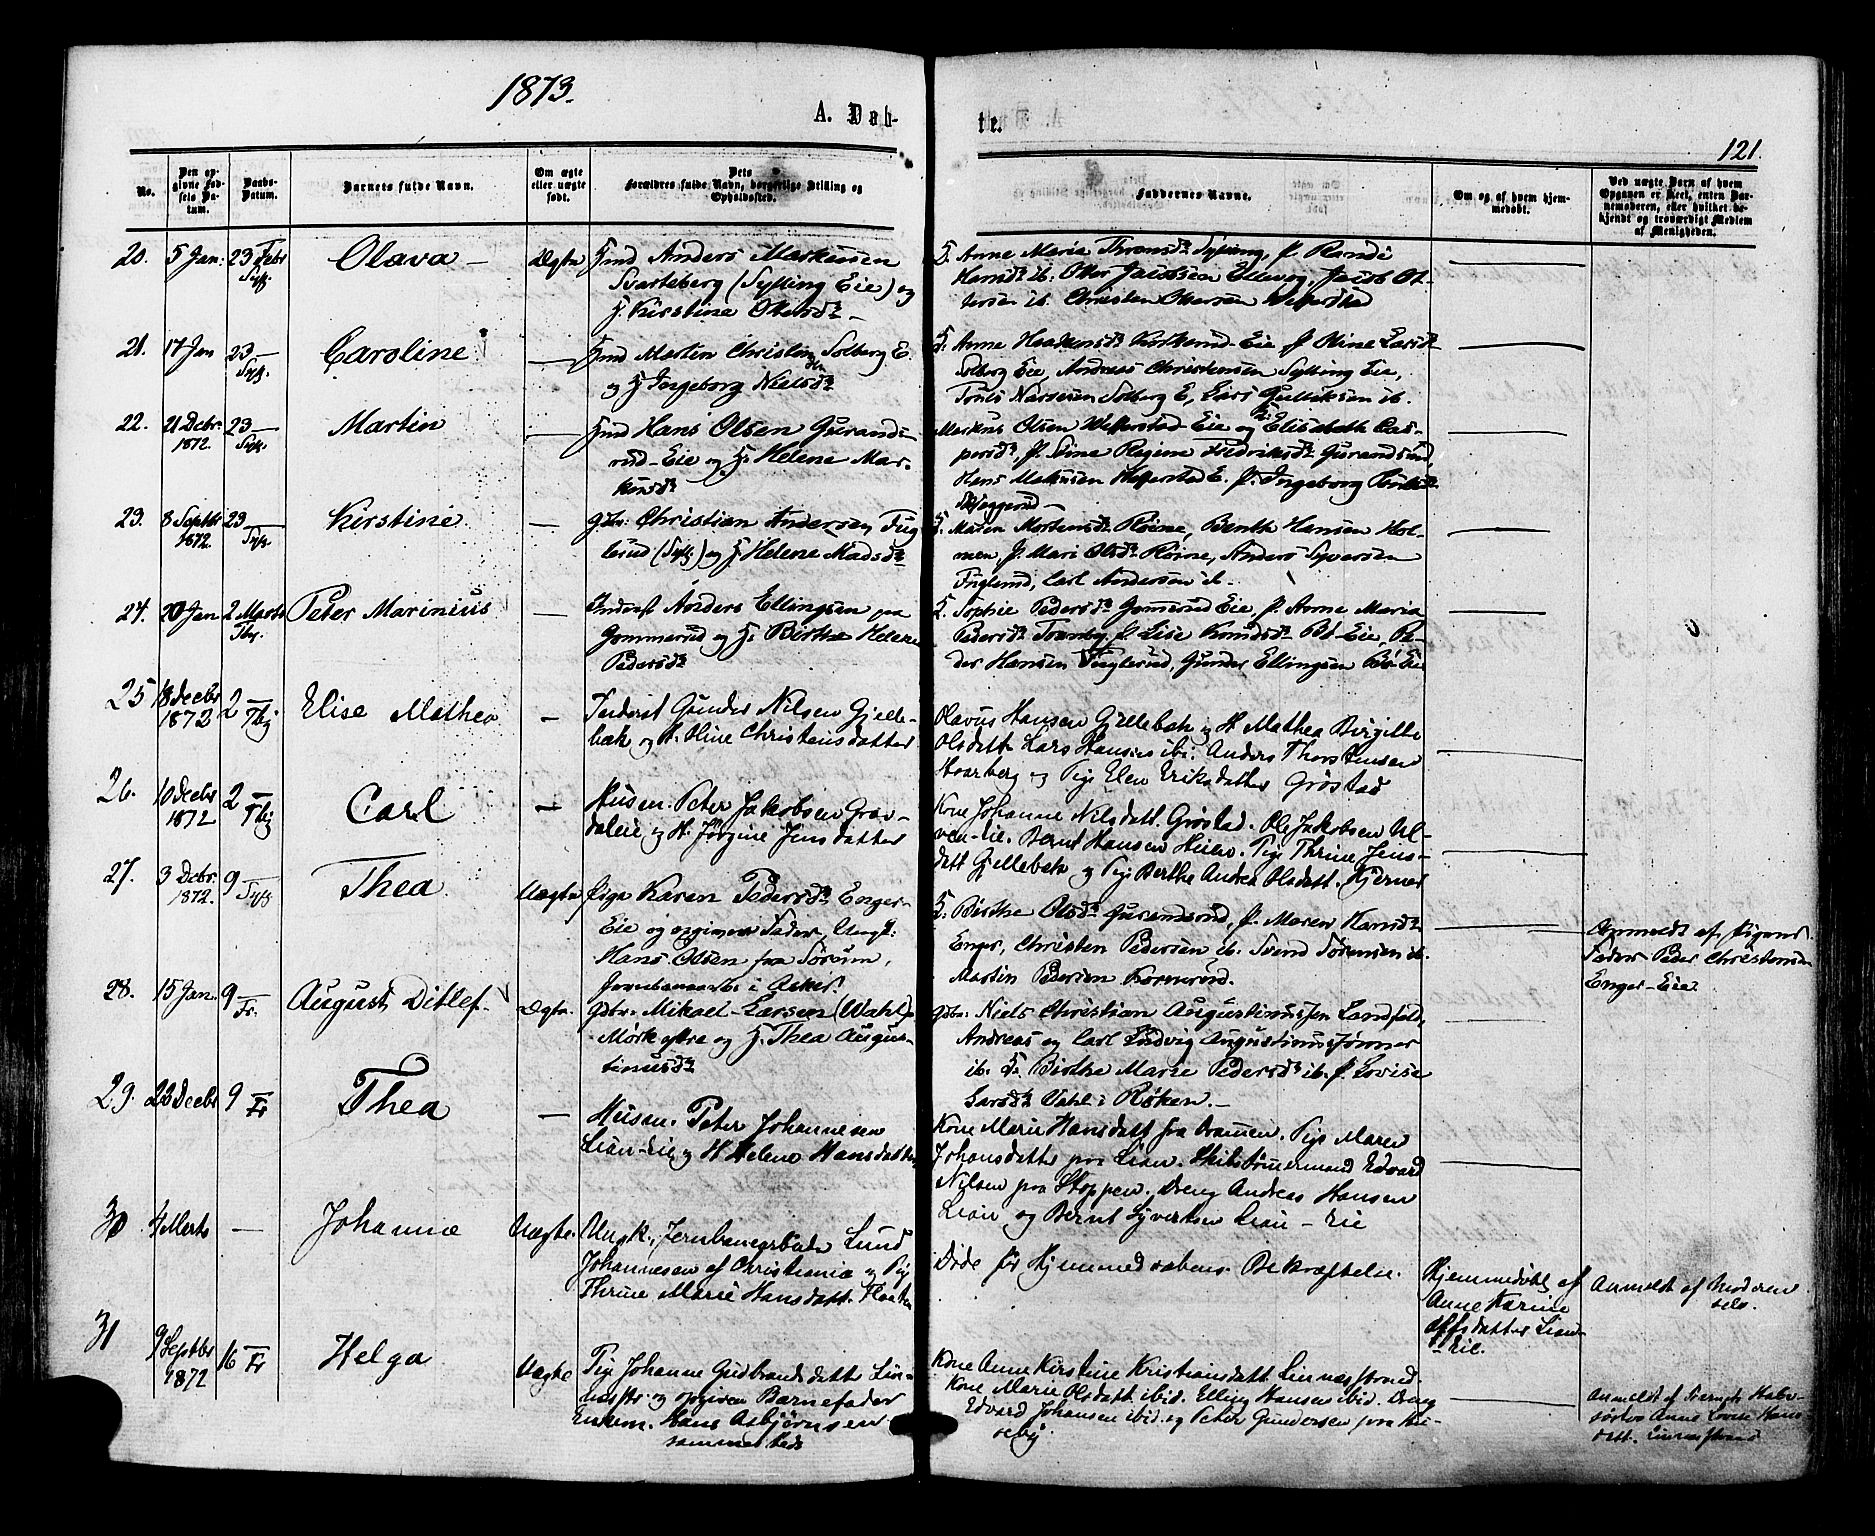 1873.
A. Døb-
te.
121.
No.
Den op-
givne Fød-
sels Da-
tum.
Daabs-
Datum.
Barnets fulde Navn.
Om ægte
eller uægte
født.
Dets
Forældres fulde Navn, borgerlige Stilling og
Opholdssted.
Faddernes Navne.
Om og af hvem hjem-
medøbt.
Ved uægte Børn af hvem
Opgaven er skeet, enten Bar-
nemoderen, eller hvilket be-
kjendt og troværdigt Medlem
af Menigheden.
20. 5 Jan. 23 Febr Sylg. Olava — Ægte Hmd Anders Markusen
Svarteberg (Sylling Eie) og
H. Kirstine Olsdr —
K. Anne Maria Sylling, P. Randi
Hansdr ib. Jacobsen Jacob Ot-
tersen ib. Christen Ottersen
21. 17 Jan 23 — Sylg. Caroline — Hmd Morten Christensen Solberg E.
og H. Ingeborg Nielsdr
K. Anne Eie P. Oline Larsdr
Solberg Eie, Andreas Christensen Sylling Eie,
Solberg E, Lars Gulliksen ib.
22. 21 Debr. 1872. 23 — Sylg. Martin — Hmd Hans Olsen Gurands-
rud-Eie og H. Helene Mar-
kusdr
Markus Olsen Eie og K. Elisabeth Cas-
persdr, P. Regine Fredriksdr Gurandsrud,
Hans Markusen E. P. Ingeborg
23. 8 Septbr 1872. 23 — Sylg. Kirstine — Gbr. Christian Andersen Fug-
lerud (Sylg) og H. Helene Madsdr
K. Maren Mortensdr Hansen Hol-
men, P. Mari Olsdr Anders Syversen
Fuglerud, Carl Andersen ib.
24. 20 Jan 2 Marts Thg. Peter Marinius — Inderst Anders Ellingsen paa
Gommerud og H. Birthe Helene
Pedersdr
K. Sophie Pedersdr Gomerud Eie, P. Anne Maria
Pedersdr Tranby, P. Lise Knudsdr Bø-Eie, Pe-
der Hansen Fuglerud, Gunder Ellingsen Bø-Eie
25 18 Decbr 1872 2 — Thg Elise Mathea — Inderst Gunder Nilsen Gjelle-
bæk og H. Oline Christensdatter
Olavus Hansen Gjellebæk og H. Mathea Birgitte
Olsdatt. Lars Hansen ibi. Anders Thorstensen
og Pige Elen Eriksdatter Grøstad
26. 10 Decbr 1872 2 — Thg Carl — Husm. Peter Jakobsen
og H. Jørgine Jensdatter
Kone Johanne Nilsdatt. Grøstad. Ole Jakobsen Ul-
ven-eie. Bernt Hansen Heien. Pige Thrine Jens-
datt Gjellebæk og Pige Berthe Andrea Olsdatt.
27. 3 Debr. 1872. 9 — Sylg Thea Uægte Pige Karen Pedersdr Enger-
Eie og opgiven Fader, Ungk:
Hans Olsen fra Sørum,
Jernbanearb. i Asker.
K. Birthe Olsdr Gurandsrud, P. Maren Hansdr
Enger, Christen Pedersen ib. Svend Sørensen ib.
Martin Pedersen
Anmeldt af Pigens
Fader Peder Christensen
Enger-Eie.
28. 15 Jan. 9 — Fr. August Ditlef. Ægte. Gbr. Mikael Larsen (Wahl)
Mørk ytre og H. Thea Augus-
tinusdr
Gbr. Niels Christian Augustinussen Landfald,
Andreas og Carl Ludvig Augustinussønner
ib. K. Birthe Marie Pedersdr ib. P. Lovise
Larsdr Vahl i Røken. —
29. 26 Decbr 9 — Fr Thea — Husm. Peter Johannesen
Lian-eie og H. Helene Hansdatter
Kone Marie Hansdatt fra Dramen. Pige Maren
Johansdatter paa Lian. Edvard
Nilsen paa Stoppen. Dreng Andreas Hansen
Lian og Bernt Syvertsen Lian-eie
30 4 Marts — Johanne Uægte. Ungk., Jernbanearbeider Lund
Johannesen af Christiania og Pige
Thrine Marie Hansdatt.
Døde før Hjemmedaabens Bekræftelse.
Hjemmedøbt af
Anne Karine
datter Lian-
eie.
Anmeldt af Moderen
selv.
31 9 Septbr 1872 16 — Fr Helga Uægte Pige Johanne Gudbrandsdatt.
og opgiven Barnefader
Enkem. Hans Asbjørnsen
sammesteds
Kone Anne Kirstine Kristiansdatt.
Kone Marie Olsdatt ibid. Elling Hansen ibid. Dreng
Edvard Johansen ibid. og Peter Gundersen paa Hu-
seby.
Anmeldt af Barnets
Anne Lovise Hans-
datt.